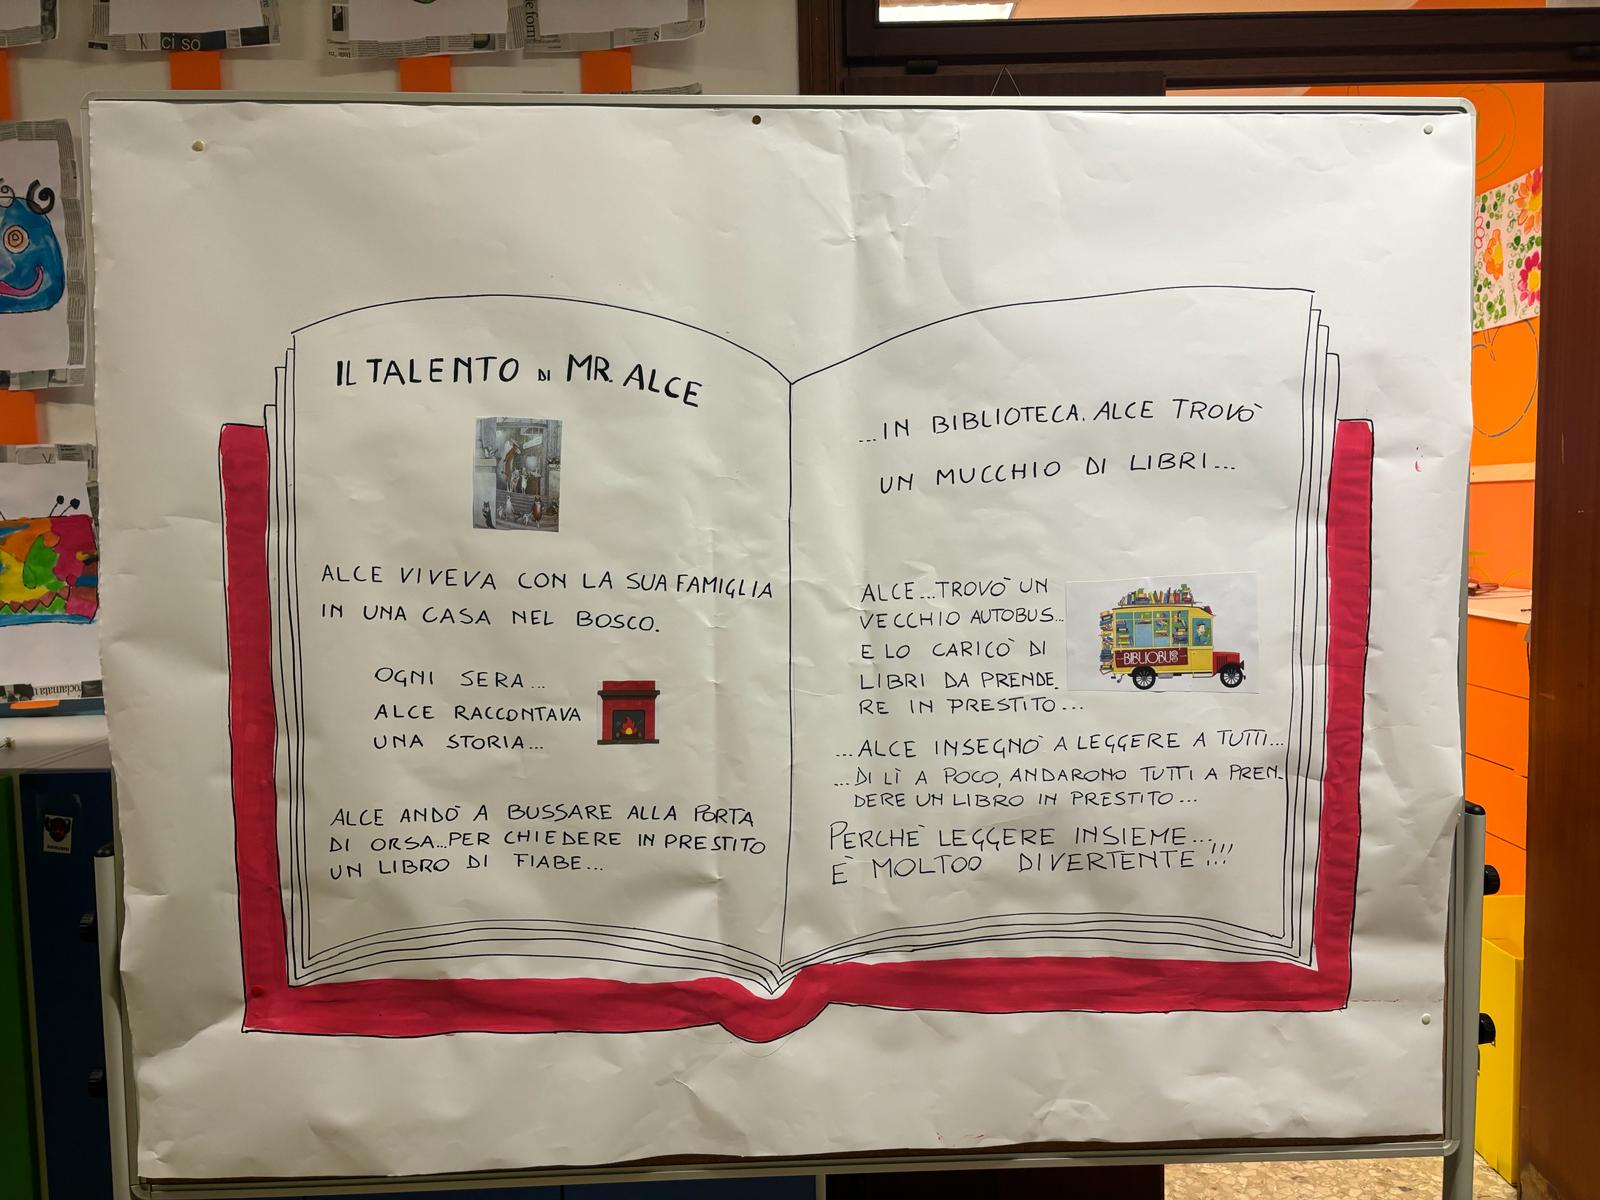 IL TALENTO DI MR. ALCE
ALCE VIVEVA CON LA SUA FAMIGLIA
IN UNA CASA NEL BOSCO.
OGNI SERA...
ALCE RACCONTAVA
UNA STORIA...
ALCE ANDÒ A BUSSARE ALLA PORTA
DI ORSA...PER CHIEDERE IN PRESTITO
UN LIBRO DI FIABE...
...IN BIBLIOTECA. ALCE TROVÒ
UN MUCCHIO DI LIBRI...
ALCE...TROVÒ UN
VECCHIO AUTOBUS...
E LO CARICÒ DI
LIBRI DA PRENDE_
RE IN PRESTITO...
BIBLIOBUS
...ALCE INSEGNÒ A LEGGERE A TUTTI...
...DI LÌ A POCO, ANDARONO TUTTI A PREN_
DERE UN LIBRO IN PRESTITO...
PERCHÈ LEGGERE INSIEME...
È MOLTOO DIVERTENTE!!!
ci so